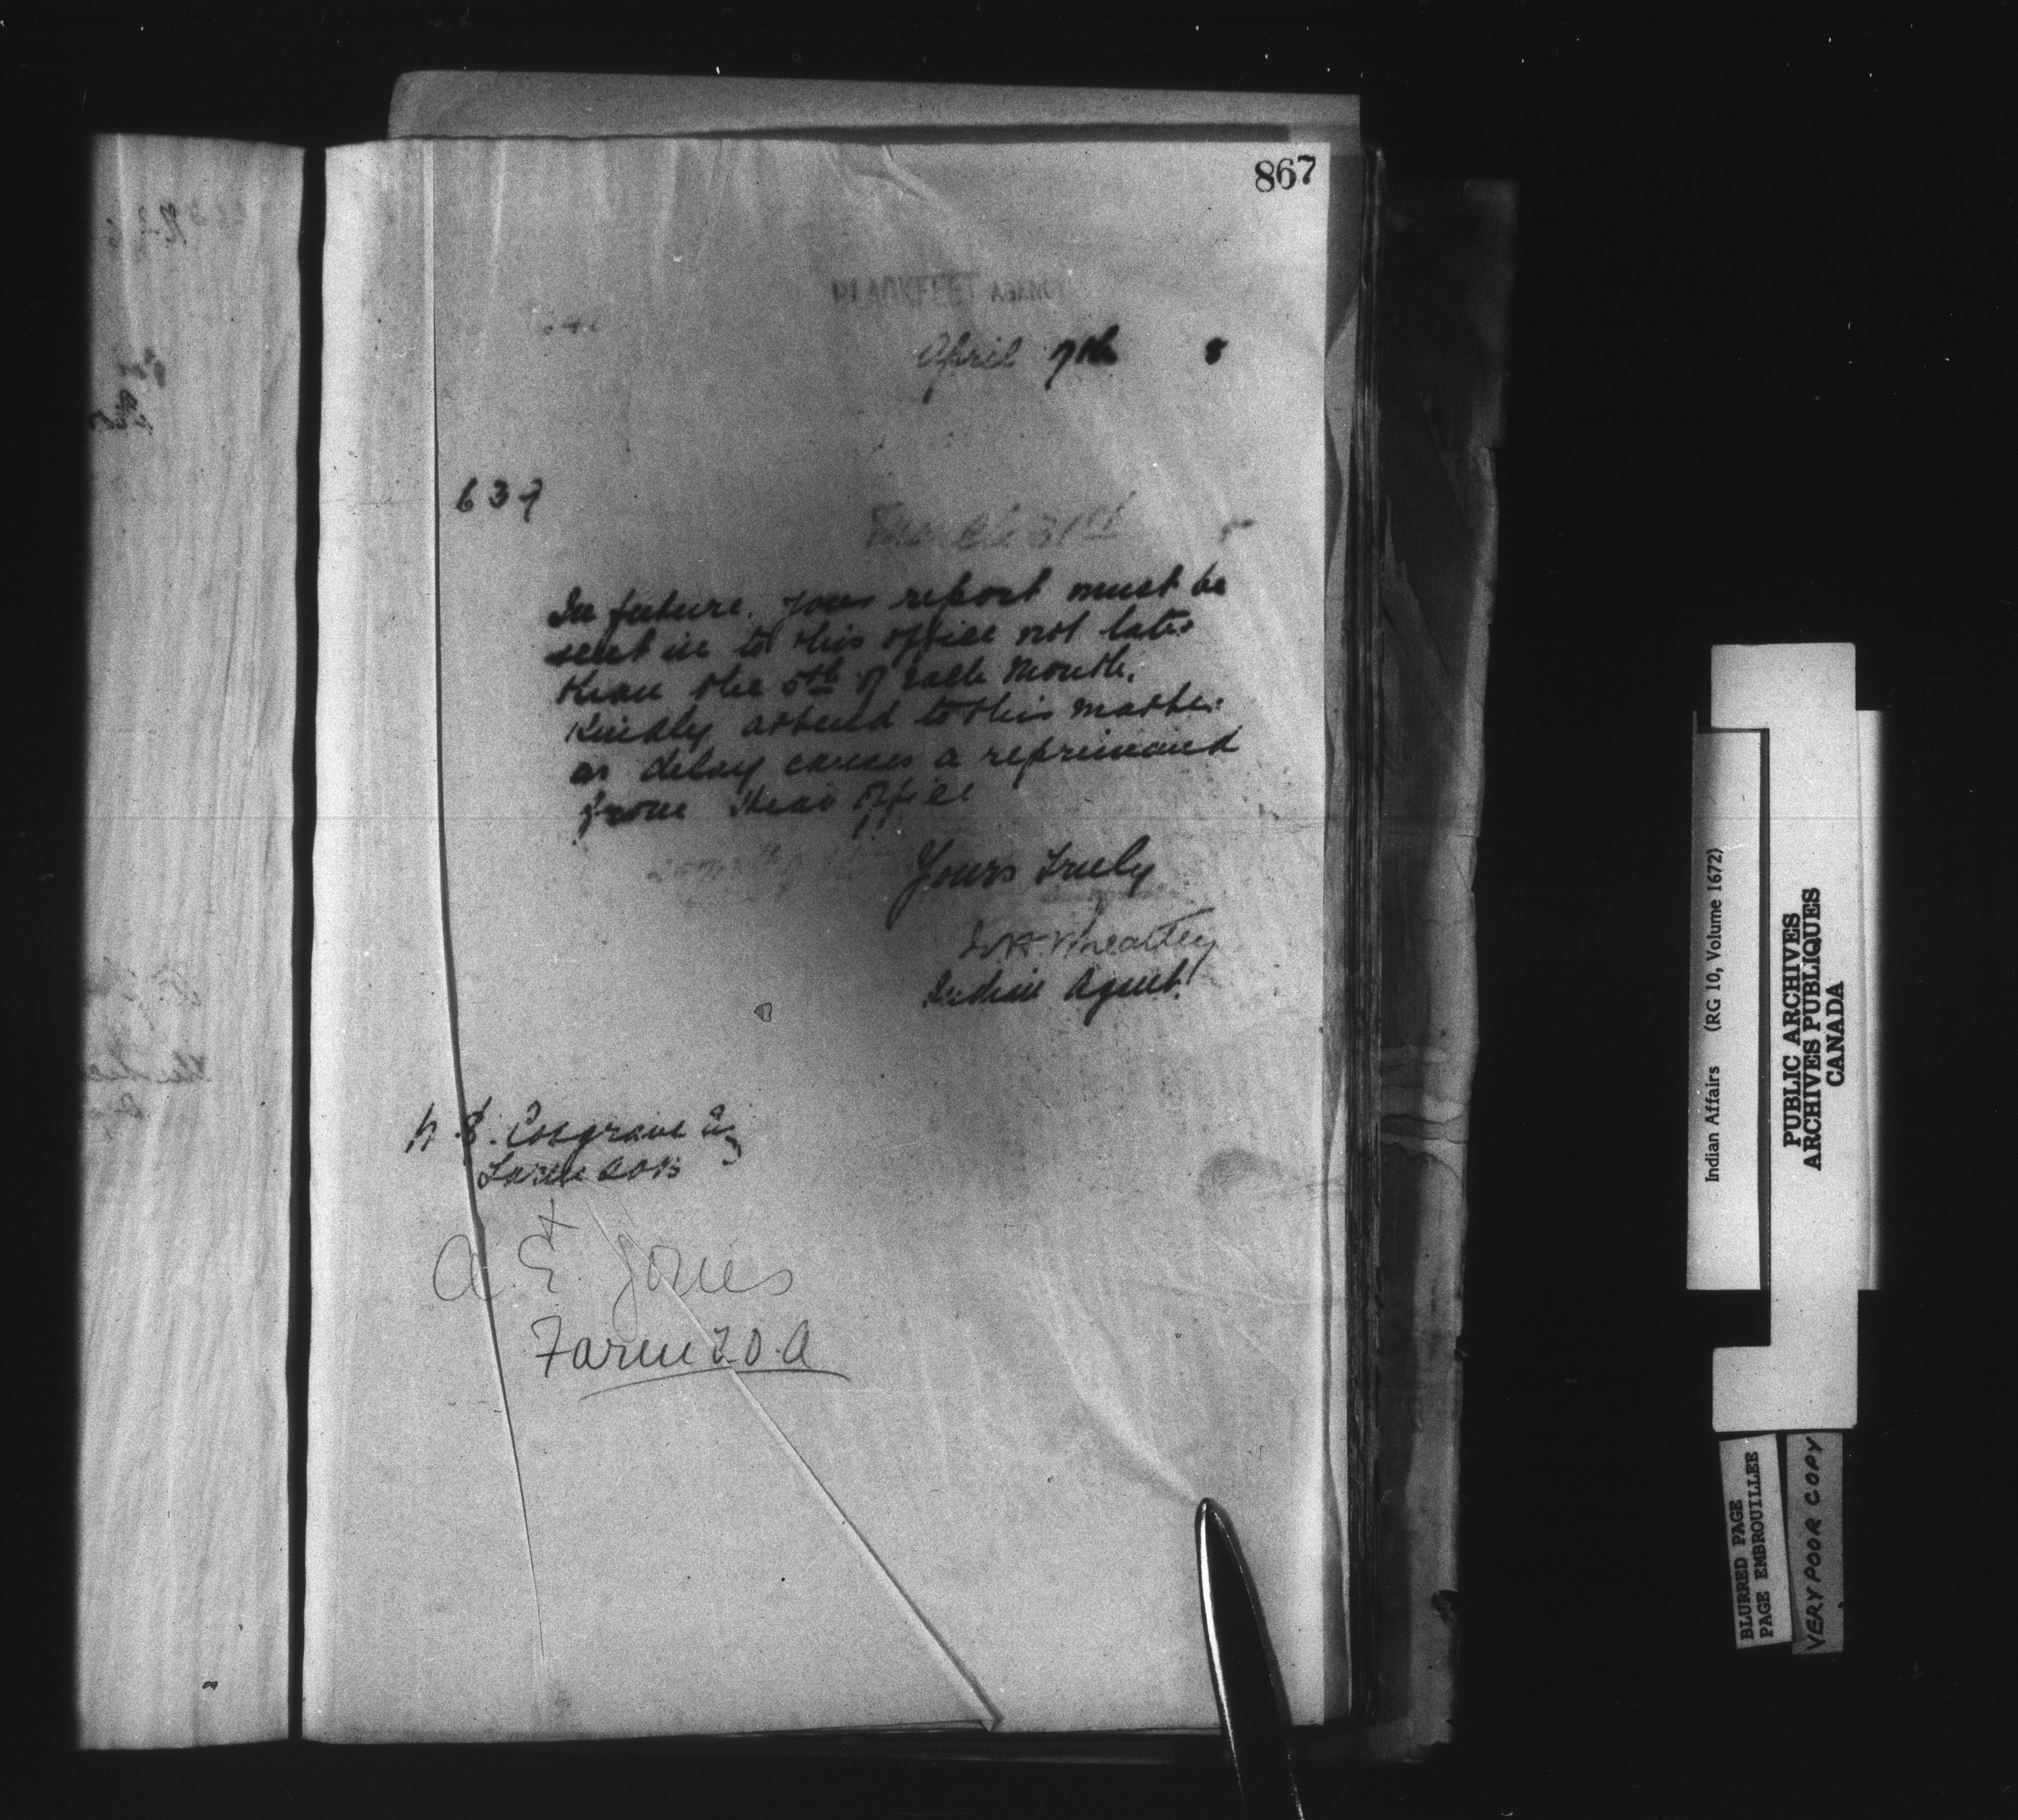 867
BLACKFEET AGENCY
April 7th 8
639
March 31st
In future, your report must be
sent in to this office not later
than the 5th of each Month.
Kindly attend to this matter
as delay causes a reprimand
from Head Office
Yours truly
Wheatley
Indian Agent
Cosgrave Esq
Farm
A. E. Jones
Farm 20.A
Indian Affairs (RG 10, Volume 1672)
PUBLIC ARCHIVES
ARCHIVES PUBLIQUES
CANADA
BLURRED PAGE
PAGE EMBROUILLEE
VERY POOR COPY